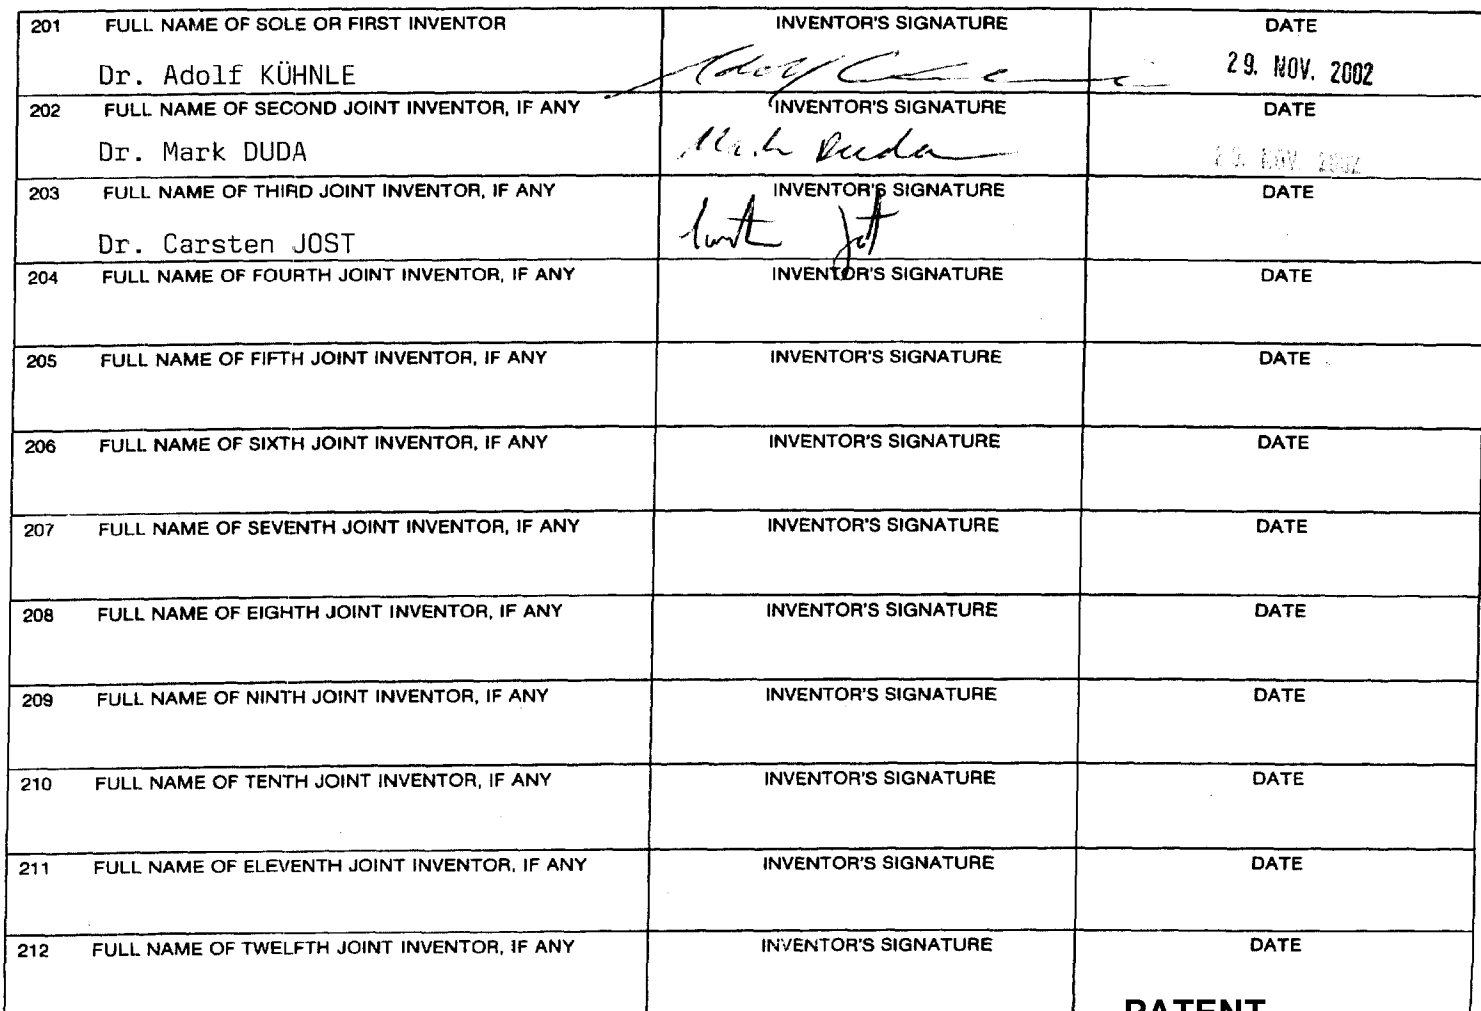 201 FULL NAME OF SOLE OR FIRST INVENTOR INVENTOR'S SIGNATURE DATE
Dr. Adolf KÜHNLE Adolf 29. NOV. 2002
202 FULL NAME OF SECOND JOINT INVENTOR, IF ANY INVENTOR'S SIGNATURE DATE
Dr. Mark DUDA Mark Duda 29. NOV. 2002
203 FULL NAME OF THIRD JOINT INVENTOR, IF ANY INVENTOR'S SIGNATURE DATE
Dr. Carsten JOST
204 FULL NAME OF FOURTH JOINT INVENTOR, IF ANY INVENTOR'S SIGNATURE DATE
205 FULL NAME OF FIFTH JOINT INVENTOR, IF ANY INVENTOR'S SIGNATURE DATE
206 FULL NAME OF SIXTH JOINT INVENTOR, IF ANY INVENTOR'S SIGNATURE DATE
207 FULL NAME OF SEVENTH JOINT INVENTOR, IF ANY INVENTOR'S SIGNATURE DATE
208 FULL NAME OF EIGHTH JOINT INVENTOR, IF ANY INVENTOR'S SIGNATURE DATE
209 FULL NAME OF NINTH JOINT INVENTOR, IF ANY INVENTOR'S SIGNATURE DATE
210 FULL NAME OF TENTH JOINT INVENTOR, IF ANY INVENTOR'S SIGNATURE DATE
211 FULL NAME OF ELEVENTH JOINT INVENTOR, IF ANY INVENTOR'S SIGNATURE DATE
212 FULL NAME OF TWELFTH JOINT INVENTOR, IF ANY INVENTOR'S SIGNATURE DATE
PATENT